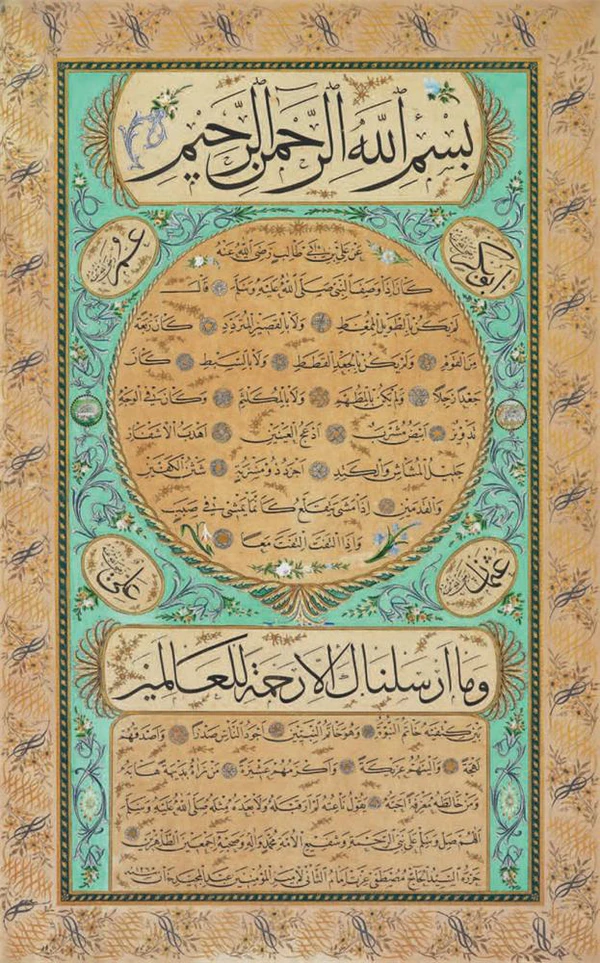 بسم الله الرحمن الرحيم
ابوبكر
عمر
عن علي بن ابي طالب رضي الله عنه
كان اذا وصف النبي صلى الله عليه وسلم قال
لم يكن بالطويل الممغط ولا بالقصير المتردد كان ربعة
من القوم ولم يكن بالجعد القطط ولا بالسبط كان
جعدا رجلا ولم يكن بالمطهم ولا بالمكلثم وكان في الوجه
تدوير ابيض مشرب ادعج العينين اهدب الاشفار
جليل المشاش والكتد اجرد ذو مسربة شثن الكفين
والقدمين اذا مشى يتقلع كانما يمشي في صبب
واذا التفت التفت معا
عثمان
علي
وما ارسلناك الا رحمة للعالمين
بين كتفيه خاتم النبوة وهو خاتم النبيين اجود الناس صدرا واصدقهم
لهجة والينهم عريكة واكرمهم عشيرة من رآه بديهة هابه
ومن خالطه معرفة احبه يقول ناعته لم ار قبله ولا بعده مثله صلى الله عليه وسلم
اللهم صل وسلم على نبي الرحمة وشفيع الامة محمد وآله وصحبه اجمعين الطاهرين
حرره السيد الحاج مصطفى عزت امام الثاني لامير المؤمنين عبد المجيد خان